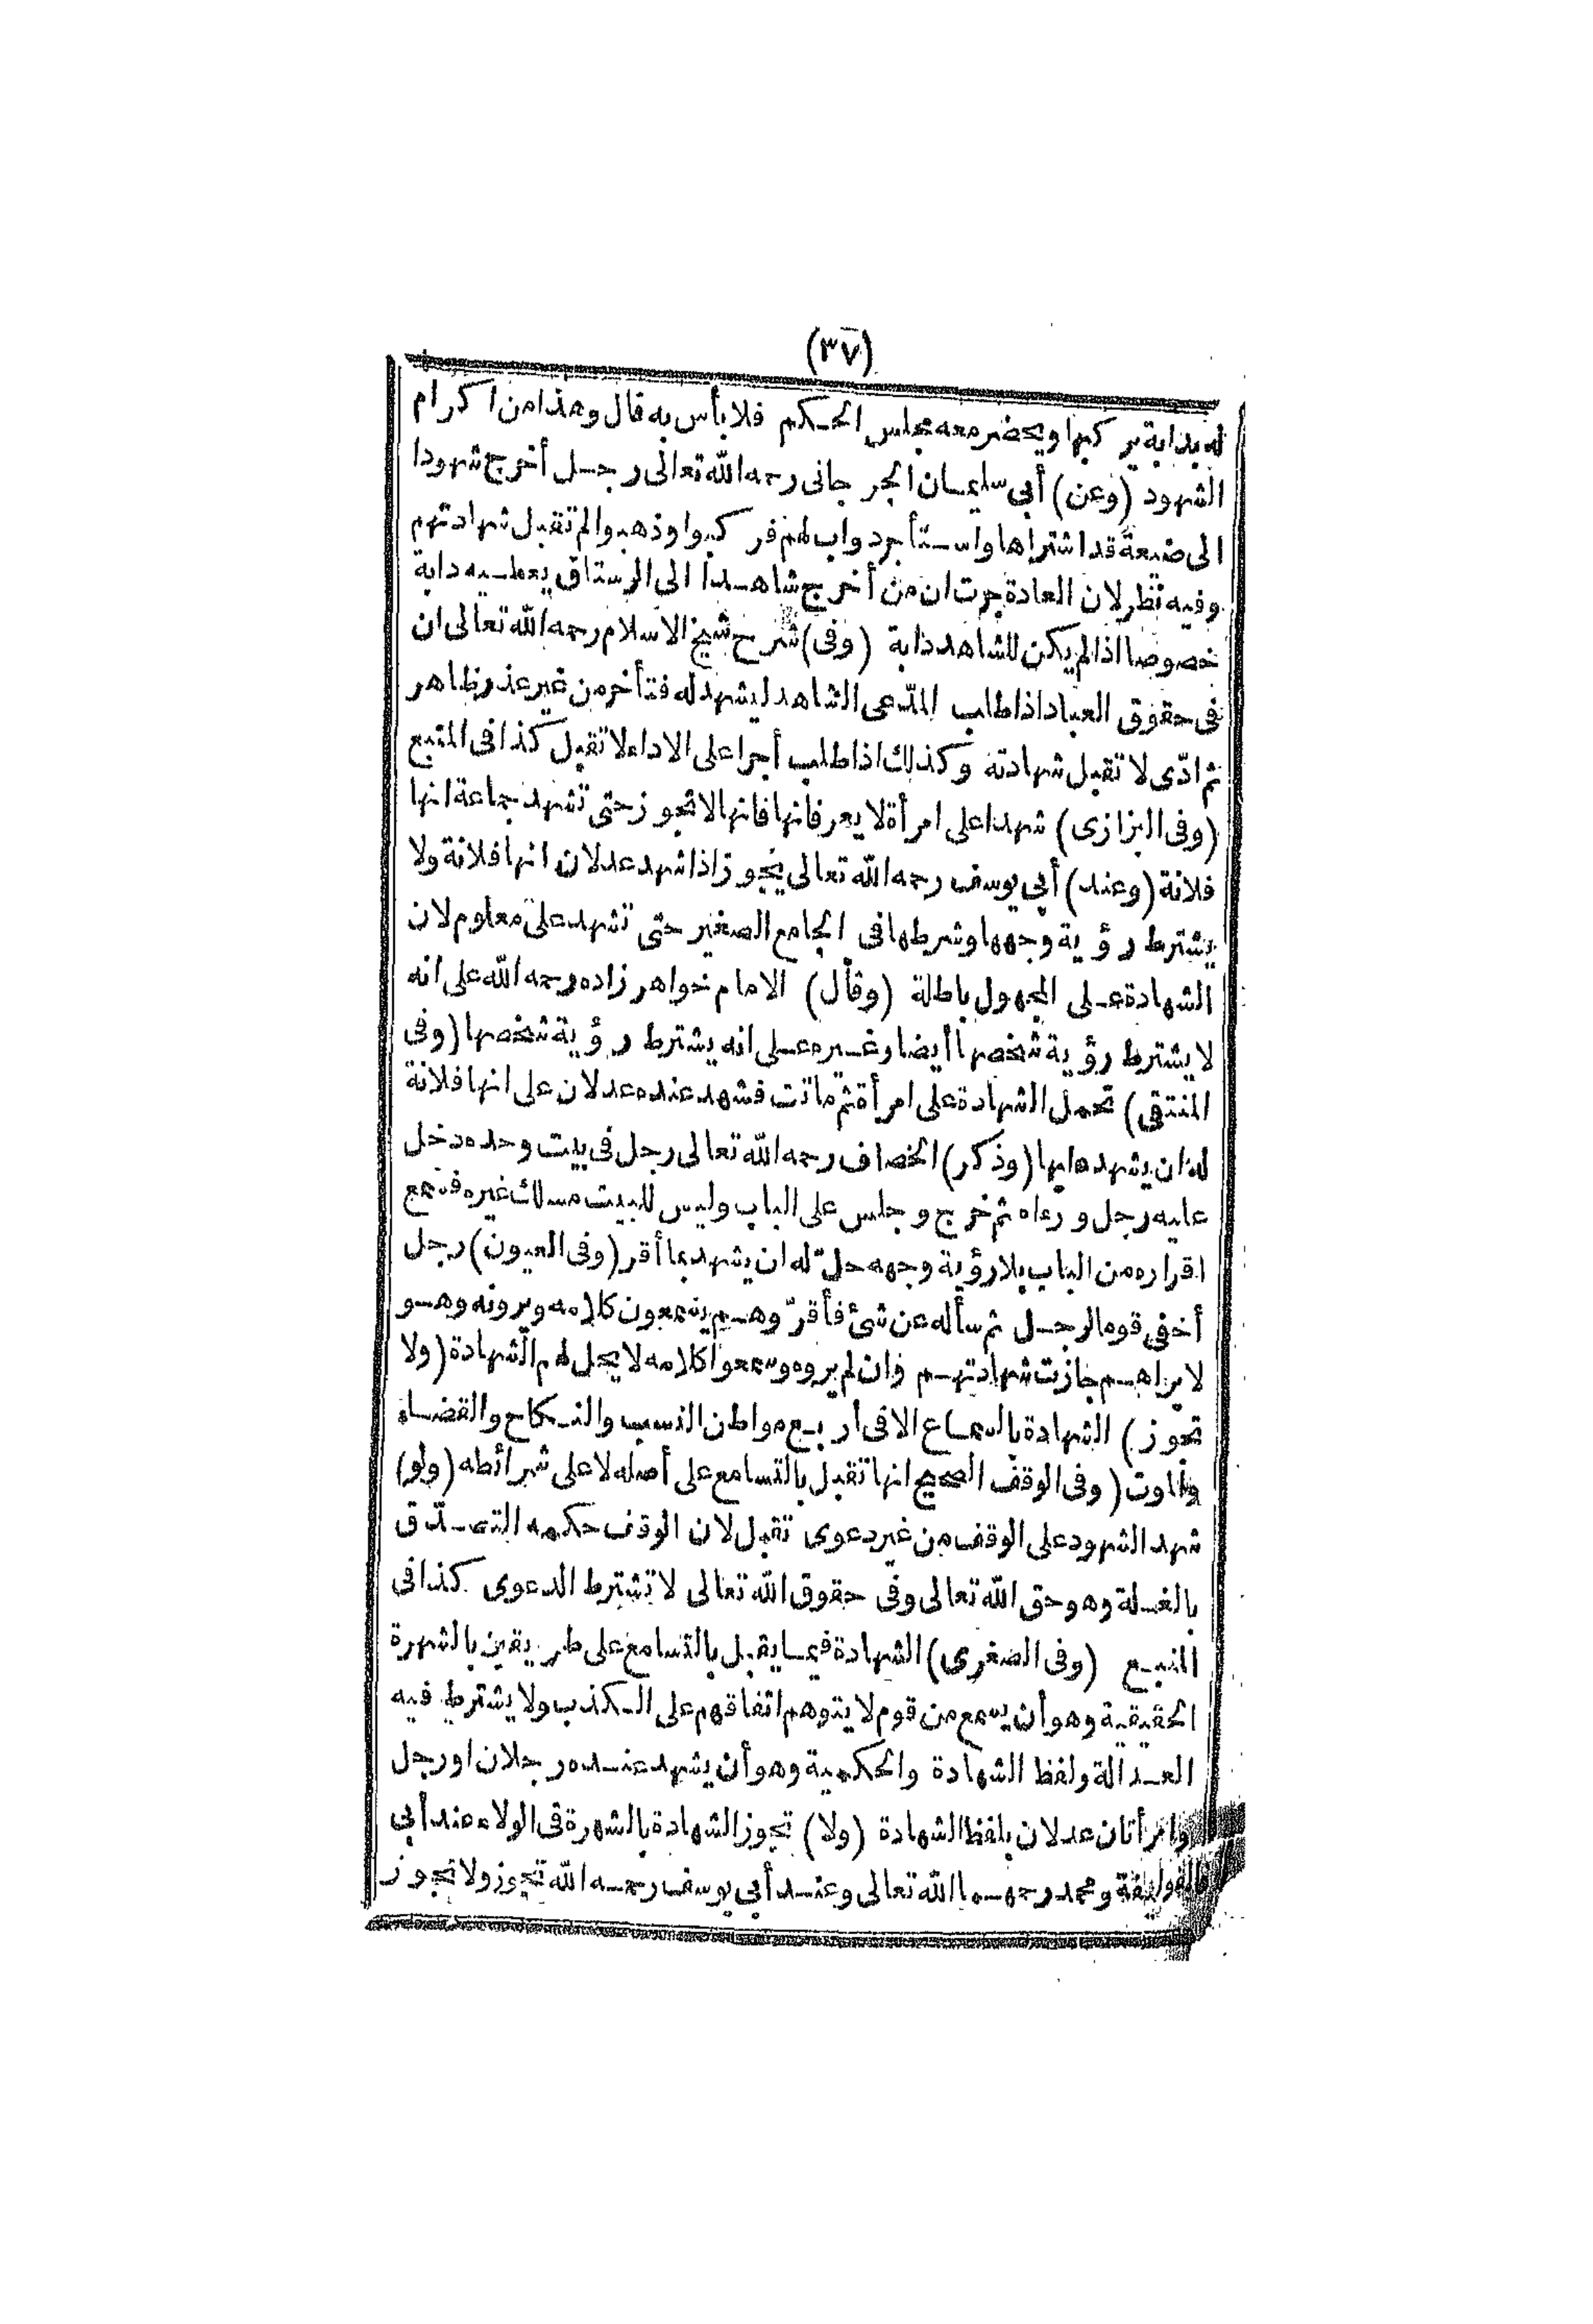 (٣٧)
له بدابة يركبها ويحضر معه مجلس الحكم فلا بأس به قال وهذا من اكرام
الشهود (وعن) أبي سليمان الجرجانى رحمه الله تعالى رجل أخرج شهودا
الى ضيعة قد اشتراها واستأجر دواب لهم فركبوا وذهبوا لم تقبل شهادتهم
وفيه نظر لان العادة جرت ان من أخرج شاهدا الى الرستاق يعطيه دابة
خصوصا اذا لم يكن للشاهد دابة (وفى) شرح شيخ الاسلام رحمه الله تعالى ان
فى حقوق العباد اذا طلب المدّعى الشاهد ليشهد له فتأخر من غير عذر ظاهر
ثم ادّى لا تقبل شهادته وكذلك اذا طلب أجرا على الاداء لا تقبل كذا فى المنبع
(وفى البزازى) شهدا على امرأة لا يعرفانها فانها لا تجوز حتى تشهد جماعة انها
فلانة (وعند) أبى يوسف رحمه الله تعالى يجوز اذا شهد عدلان انها فلانة ولا
يشترط رؤية وجهها وشرطها فى الجامع الصغير حتى تشهد على معلوم لان
الشهادة على المجهول باطلة (وقال) الامام خواهر زاده رحمه الله على انه
لا يشترط رؤية شخصها أيضا وغيره على انه يشترط رؤية شخصها (وفى
المنتقى) تحمل الشهادة على امرأة ثم ماتت فشهد عنده عدلان على انها فلانة
له ان يشهد عليها (وذكر) الخصاف رحمه الله تعالى رجل فى بيت وحده دخل
عليه رجل ورءاه ثم خرج وجلس على الباب وليس للبيت مسلك غيره فسمع
اقراره من الباب بلا رؤية وجهه حلّ له ان يشهد بما أقر (وفى العيون) رجل
أخفى قوما لرجل ثم سأله عن شئ فأقرّ وهم يسمعون كلامه ويرونه وهو
لا يراهم جازت شهادتهم وان لم يروه وسمعوا كلامه لا يحل لهم الشهادة (ولا
تجوز) الشهادة بالسماع الا فى أربع مواطن النسب والنكاح والقضاء
والموت (وفى الوقف الصحيح انها تقبل بالتسامع على أصله لا على شرائطه (ولو)
شهد الشهود على الوقف من غير دعوى تقبل لان الوقف حكمه التصدّق
بالغلة وهو حق الله تعالى وفى حقوق الله تعالى لا تشترط الدعوى كذا فى
المنبع (وفى الصغرى) الشهادة فيما يقبل بالتسامع على طريقين بالشهرة
الحقيقية وهو أن يسمع من قوم لا يتوهم اتفاقهم على الكذب ولا يشترط فيه
العدالة ولفظ الشهادة والحكمية وهو أن يشهد عنده رجلان او رجل
وامرأتان عدلان بلفظ الشهادة (ولا) تجوز الشهادة بالشهرة فى الولاء عند أبى
ومحمد رحمهما الله تعالى وعند أبى يوسف رحمه الله تجوز ولا تجوز